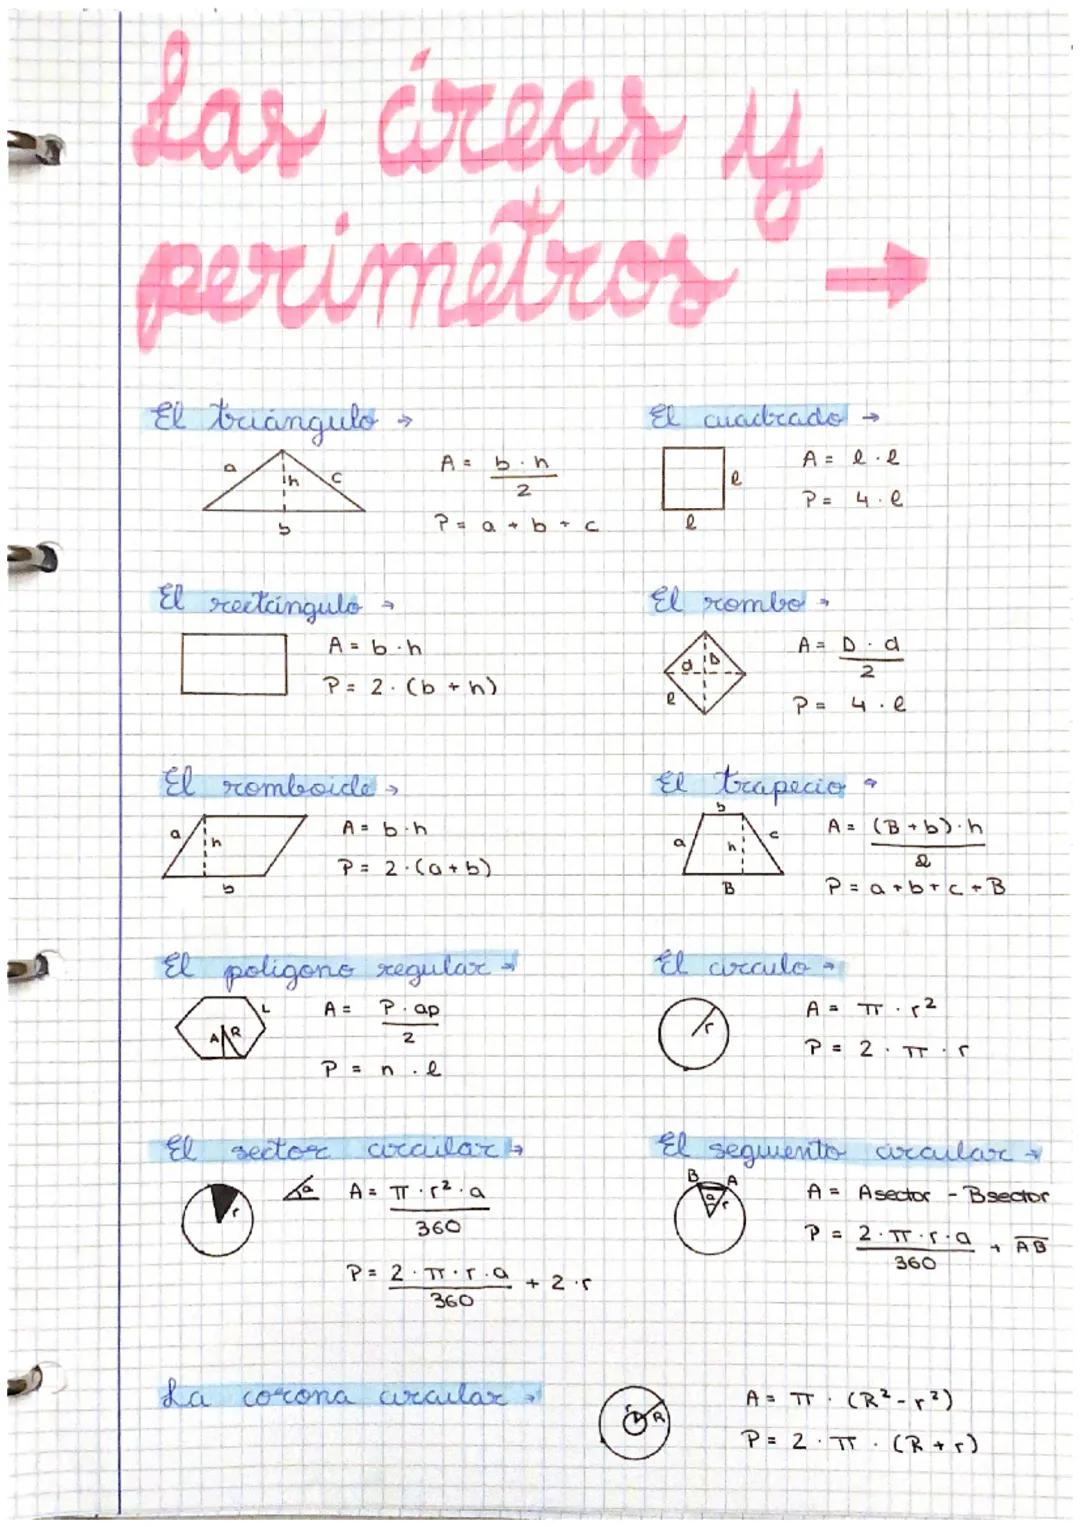 Las áreas y
perímetros →
El triángulo →
a
h
c
b
A = b · h
2
P = a + b + c
El cuadrado →
l
l
A = l · l
P = 4 · l
El rectángulo →
A = b · h
P = 2 · (b + h)
El rombo →
d D
l
A = D · d
2
P = 4 · l
El romboide →
a
h
b
A = b · h
P = 2 · (a + b)
El trapecio →
b
a
h
c
B
A = (B + b) · h
2
P = a + b + c + B
El polígono regular →
L
A R
A = P · ap
2
P = n · l
El círculo →
r
A = π · r²
P = 2 · π · r
El sector circular →
r
a
A = π · r² · a
360
P = 2 · π · r · a + 2 · r
360
El segmento circular →
B A
a r
A = Asector - Bsector
P = 2 · π · r · a + AB
360
La corona circular →
r R
A = π · (R² - r²)
P = 2 · π · (R + r)